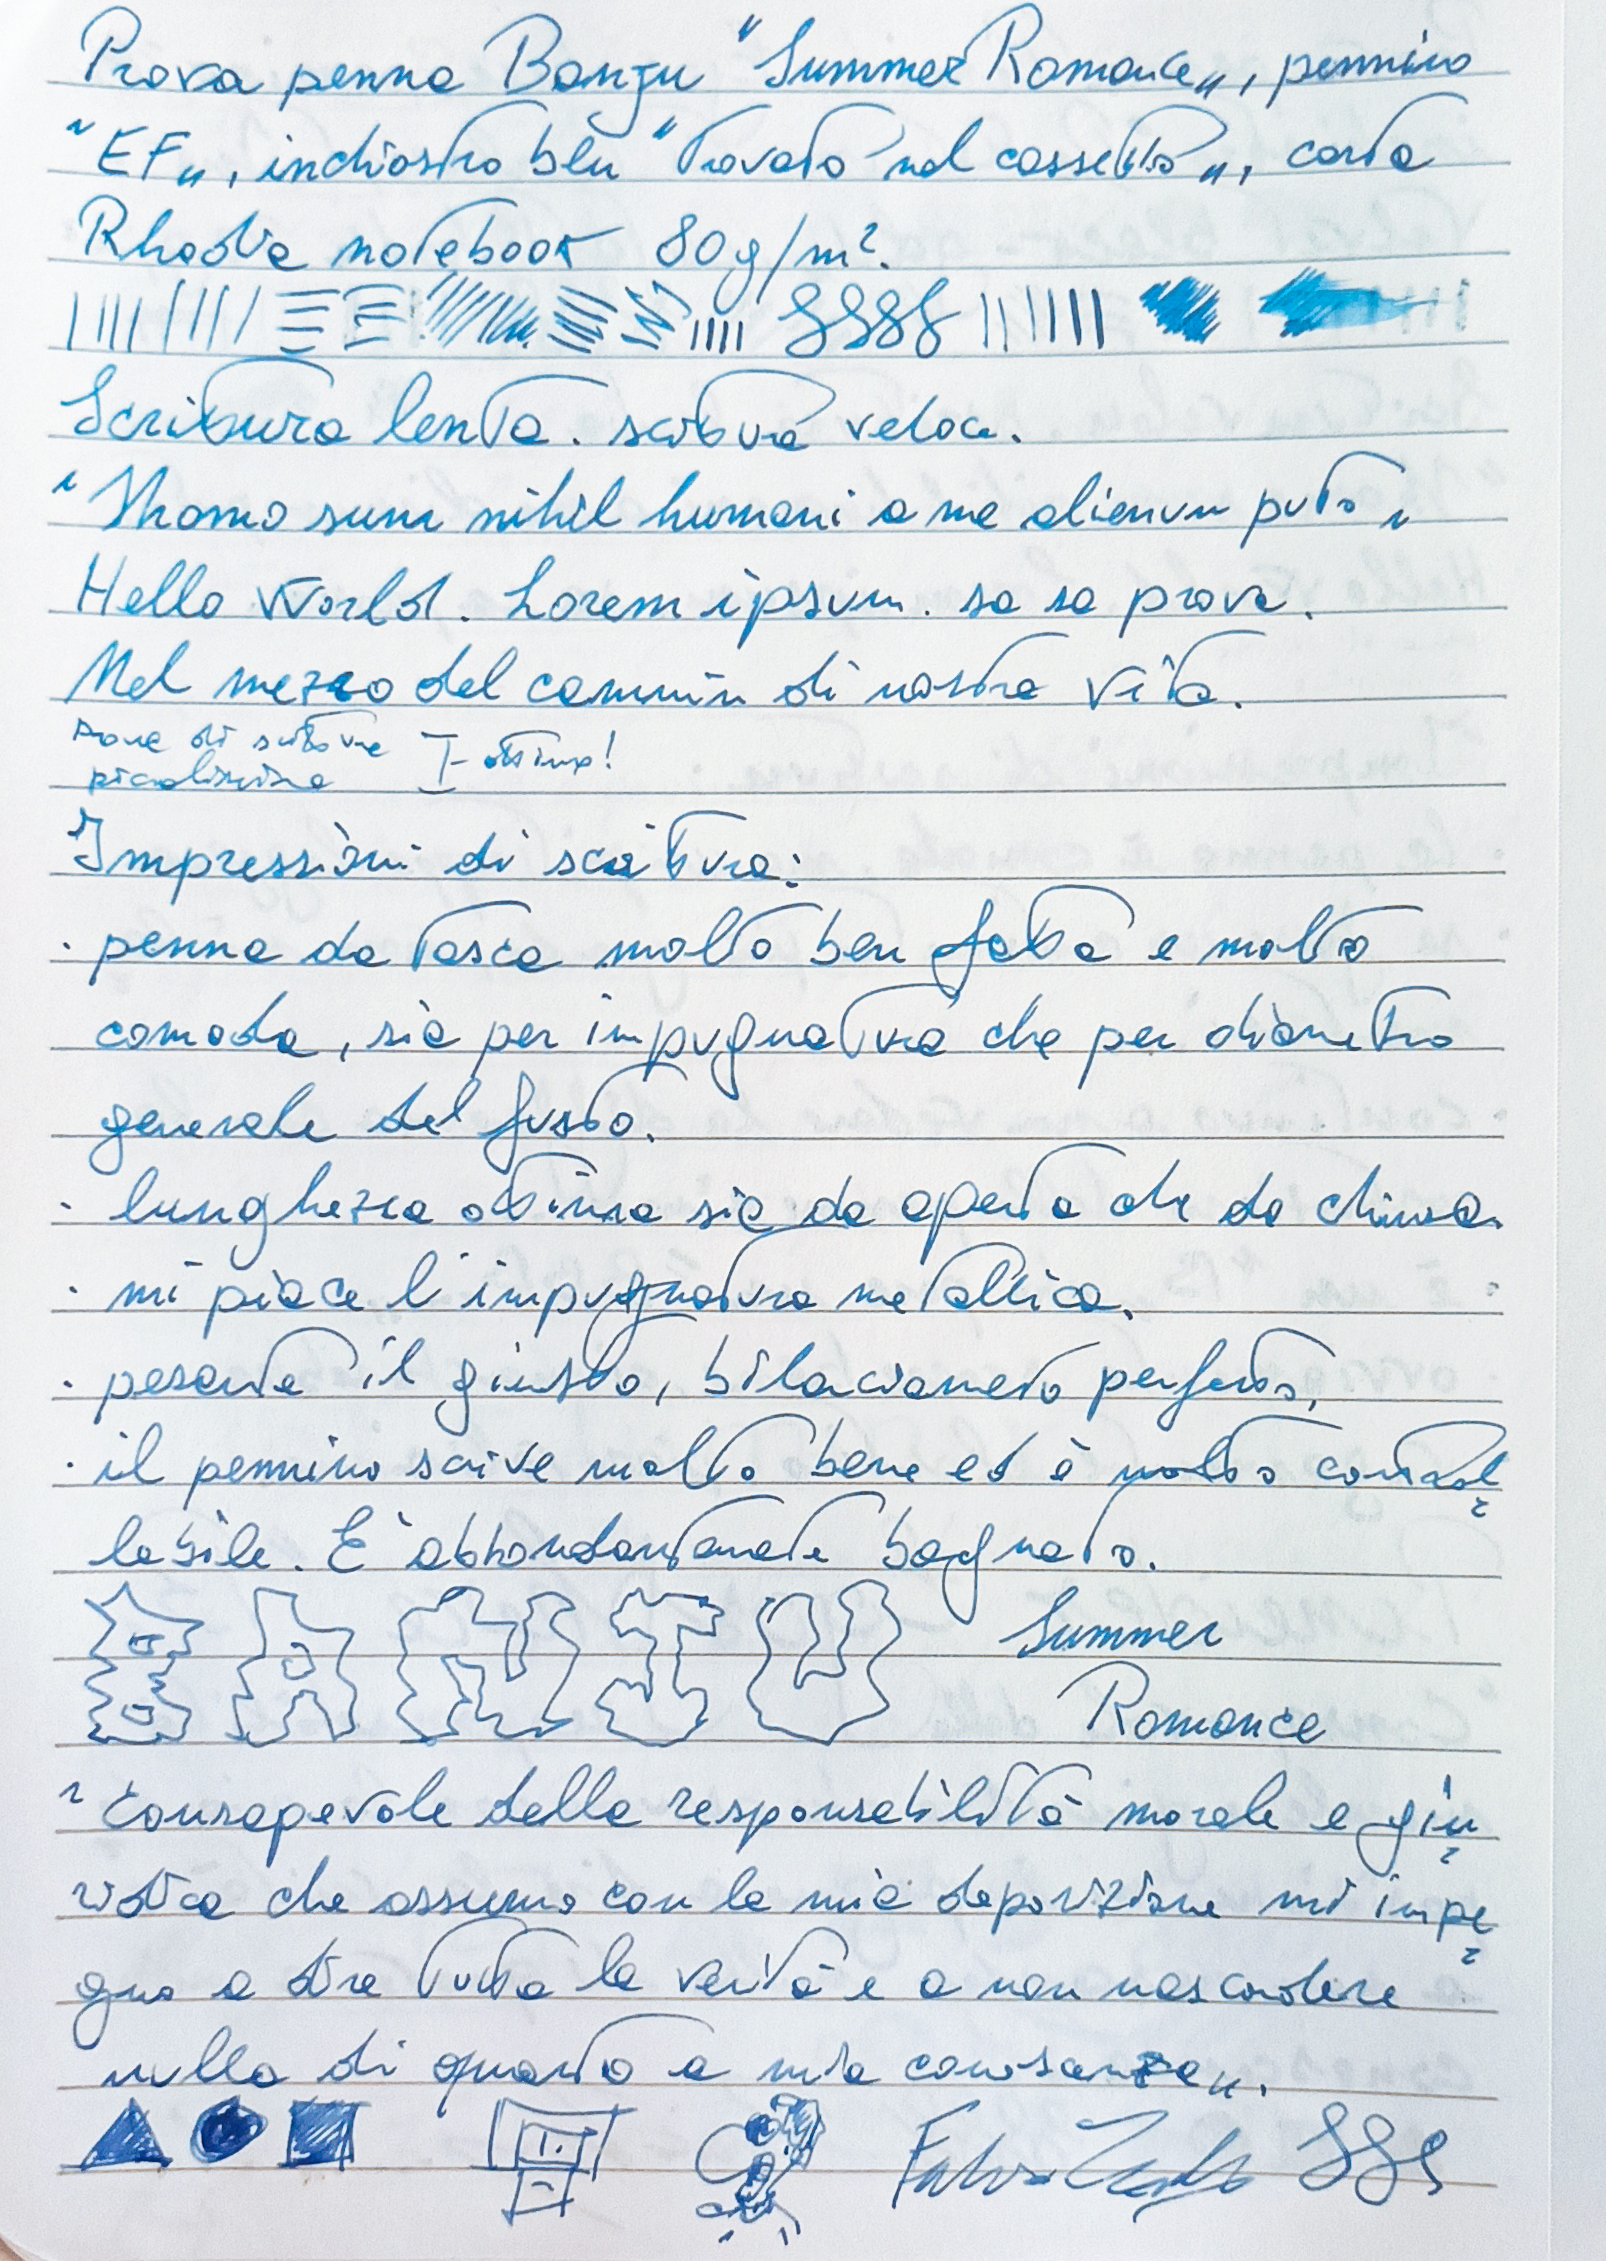 Prova penna Banju "Summer Romance", pennino
"EF", inchiostro blu "trovato nel cassetto", carta
Rhodia notebook 80g/m².
Scrittura lenta. scrittura veloce.
"Homo sum nihil humani a me alienum puto"
Hello World. Lorem ipsum. sa sa prova.
Nel mezzo del cammin di nostra vita.
Prove di scrittura
piccolissima I- ottimo!
Impressioni di scrittura:
· penna da tasca molto ben fatta e molto
comoda, sia per impugnatura che per diametro
generale del fusto.
· lunghezza ottima sia da aperta che da chiusa.
· mi piace l'impugnatura metallica.
· pesante il giusto, bilacianato perfetto,
· il pennino scrive molto bene ed è molto control
labile. E' abbondantemente bagnato.
BANJU Summer
Romance
"Consapevole della responsabilità morale e giu
ridica che assumo con la mia deposizione mi impe
gno a dire tutta la verità e a non nascondere
nulla di quanto a mia conoscenza".